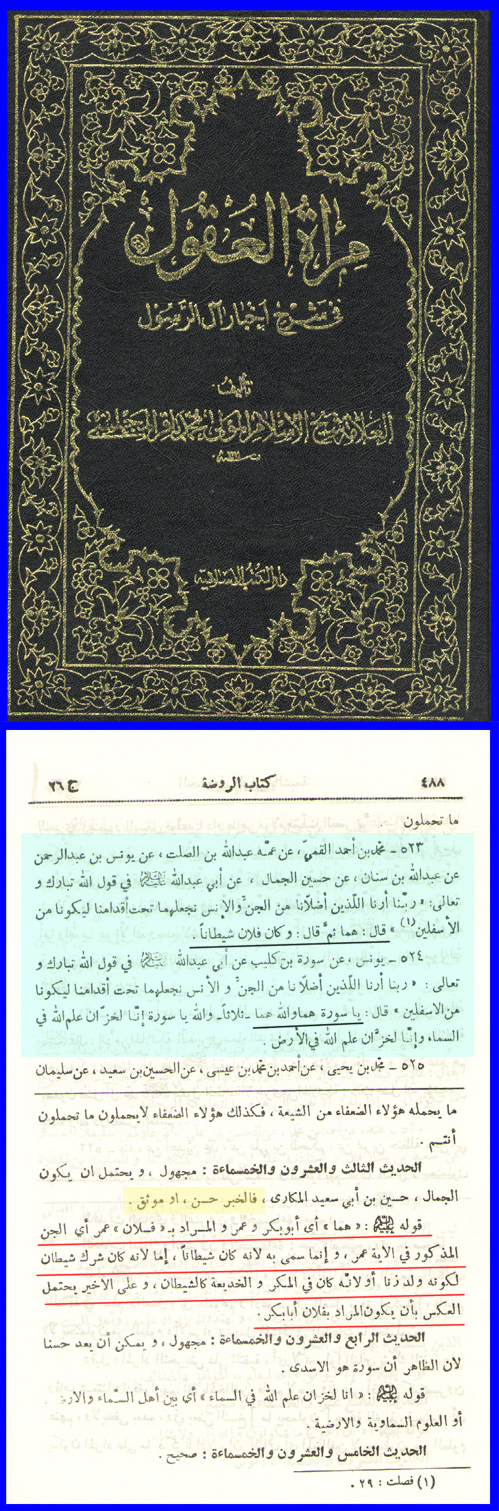 مرآة العقول
في شرح أخبار آل الرسول
تأليف
العلامة شيخ الإسلام المولى محمد باقر المجلسي
دار الكتب الإسلامية
٤٨٨ كتاب الروضة ج ٢٦
ما تحملون .
٥٢٣ ـ محمد بن أحمد القمي ، عن عمّه عبدالله بن الصلت ، عن يونس بن عبدالرحمن
عن عبدالله بن سنان ، عن حسين الجمال ، عن أبي عبدالله عليه السلام في قول الله تبارك و
تعالى: « ربّنا أرنا اللّذين أضلّانا من الجنّ والإنس نجعلهما تحت أقدامنا ليكونا من
الأسفلين (١) » قال : هما ثمّ قال : وكان فلان شيطاناً .
٥٢٤ ـ يونس ، عن سورة بن كليب عن أبي عبدالله عليه السلام في قول الله تبارك و
تعالى : « ربنا أرنا اللّذين أضلّانا من الجنّ و الأنس نجعلهما تحت أقدامنا ليكونا
من الاسفلين » قال : يا سورة هما والله هما ـ ثلاثاً ـ والله يا سورة إنّا لخزّان علم الله في
السماء وإنّا لخزّان علم الله في الأرض .
٥٢٥ ـ محمد بن يحيى ، عن أحمد بن محمد بن عيسى ، عن الحسين بن سعيد ، عن سليمان
ما يحمله هؤلاء الضعفاء من الشيعة ، فكذلك هؤلاء الضعفاء لايحملون ما تحملون
أنتم .
الحديث الثالث والعشرون والخمسماءة : مجهول ، و يحتمل ان يكون
الجمال ، حسين بن أبي سعيد المكارى ، فالخبر حسن ، او موثق .
قوله عليه السلام : « هما » أى أبوبكر و عمر و المراد بـ « فلان » عمر أي الجن
المذكور في الآية عمر ، و إنما سمى به لانه كان شيطاناً ، إما لانه كان شرك شيطان
لكونه ولد زنا أو لانّه كان في المكر و الخديعة كالشيطان ، و على الاخير يحتمل
العكس بأن يكون المراد بفلان أبابكر .
الحديث الرابع والعشرون والخمسماءة : مجهول ، و يمكن أن يعد حسنا
لان الظاهر أن سورة هو الاسدى .
قوله عليه السلام : « انا لخزان علم الله في السماء » أي بين أهل السّماء والارض .
أو العلوم السماوية والارضية .
الحديث الخامس والعشرون والخمسماءة : صحيح .
(١) فصلت : ٢٩ .